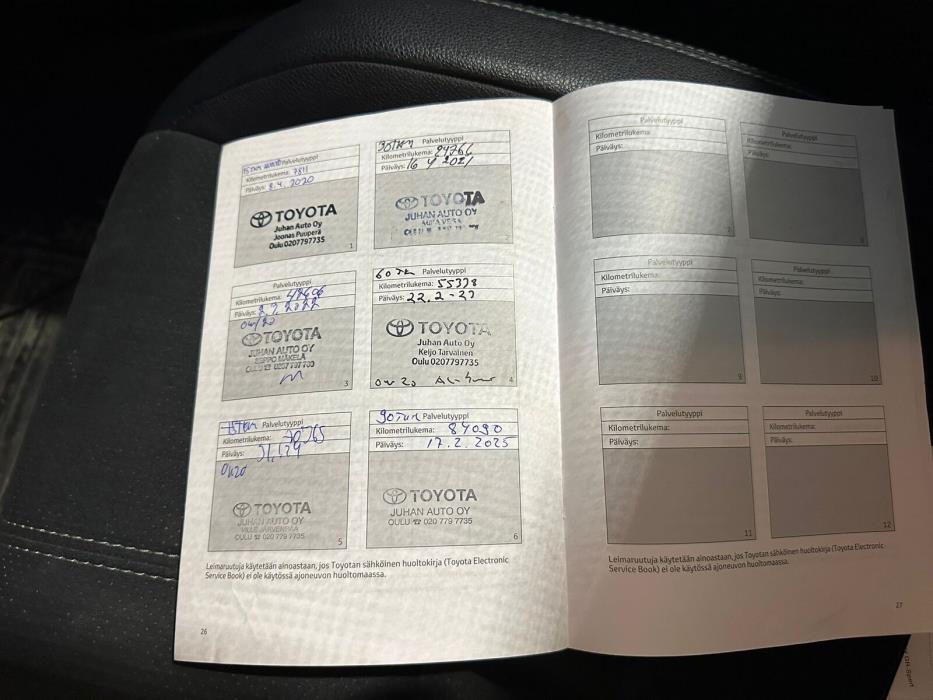 15tkm Palvelutyyppi
Kilometrilukema: 7811
Päiväys: 8.4.2020
TOYOTA
Juhan Auto Oy
Joonas Puuperä
Oulu 0207797735
1
30TKM Palvelutyyppi
Kilometrilukema:
Päiväys: 16 4 2021
TOYOTA
JUHAN AUTO OY
2
Palvelutyyppi
Kilometrilukema:
Päiväys: 2022
0W20
TOYOTA
JUHAN AUTO OY
SEPPO MÄKELÄ
OULU ☎ 0207 797 735
3
60 Tkm Palvelutyyppi
Kilometrilukema: 55378
Päiväys: 22.2-23
TOYOTA
Juhan Auto Oy
Keijo Tarvainen
Oulu 0207797735
0W20
4
75TKM Palvelutyyppi
Kilometrilukema:
Päiväys:
0W20
TOYOTA
JUHAN AUTO OY
VILLE JÄRVENPÄÄ
OULU ☎ 020 779 7735
5
90TKM Palvelutyyppi
Kilometrilukema: 84090
Päiväys: 17.2.2025
TOYOTA
JUHAN AUTO OY
OULU ☎ 020 779 7735
6
Leimaruutuja käytetään ainoastaan, jos Toyotan sähköinen huoltokirja (Toyota Electronic
Service Book) ei ole käytössä ajoneuvon huoltomaassa.
26
Palvelutyyppi
Kilometrilukema:
Päiväys:
7
Palvelutyyppi
Kilometrilukema:
Päiväys:
8
Palvelutyyppi
Kilometrilukema:
Päiväys:
9
Palvelutyyppi
Kilometrilukema:
Päiväys:
10
Palvelutyyppi
Kilometrilukema:
Päiväys:
11
Palvelutyyppi
Kilometrilukema:
Päiväys:
12
Leimaruutuja käytetään ainoastaan, jos Toyotan sähköinen huoltokirja (Toyota Electronic
Service Book) ei ole käytössä ajoneuvon huoltomaassa.
27